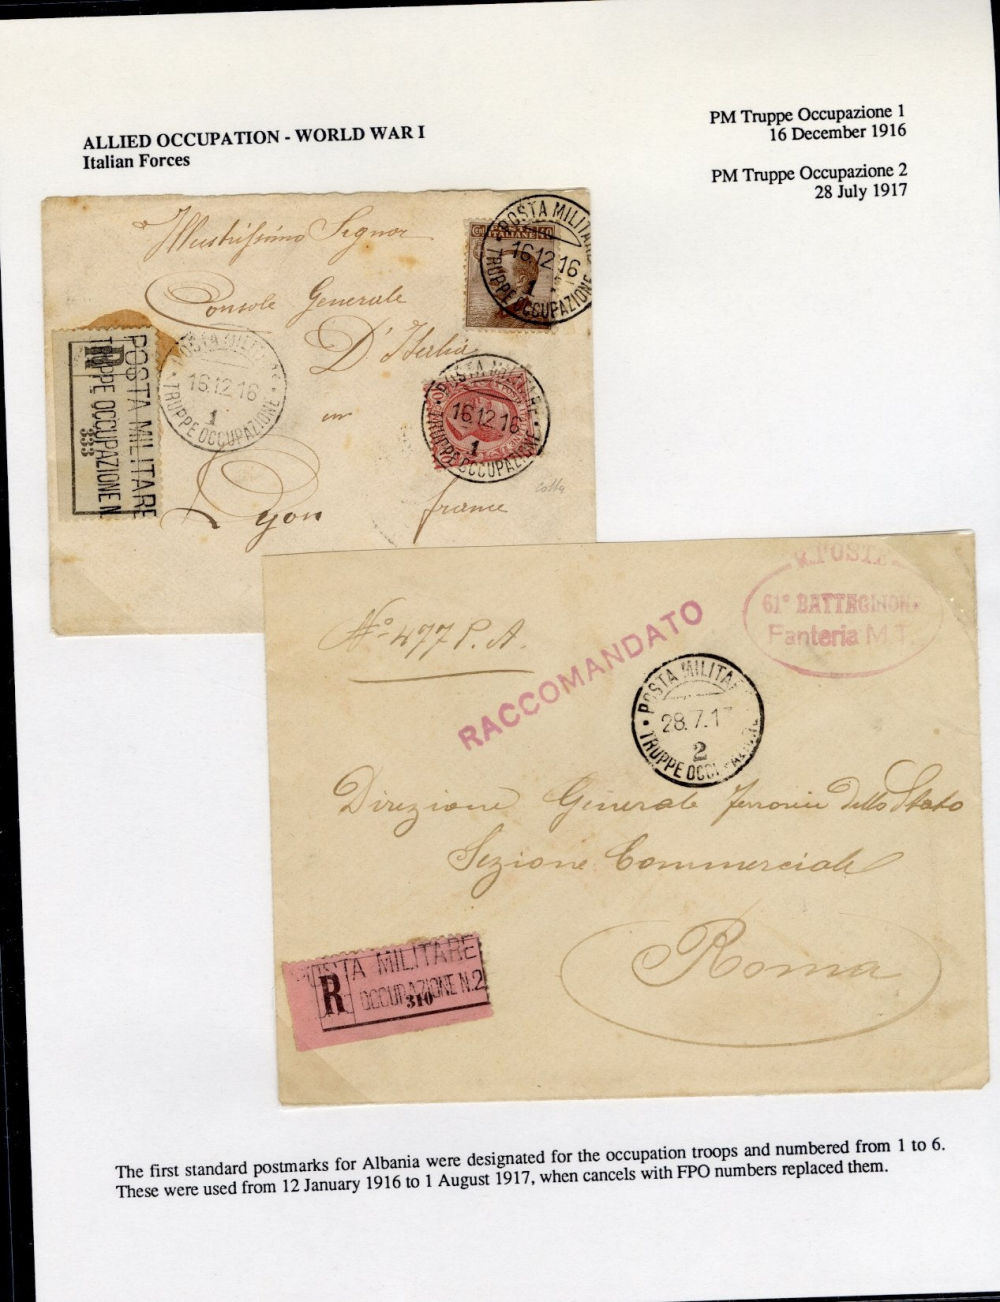 ALLIED OCCUPATION - WORLD WAR I
Italian Forces
PM Truppe Occupazione 1
16 December 1916
PM Truppe Occupazione 2
28 July 1917
Illustrissimo Signor
Console Generale
D'Italia
in
Lyon
france
POSTA MILITARE
16.12.16
1
TRUPPE OCCUPAZIONE
ITALIANE 40
POSTA MILITARE
16.12.16
1
TRUPPE OCCUPAZIONE
POSTA MILITARE
16.12.16
1
TRUPPE OCCUPAZIONE
R
POSTA MILITARE
TRUPPE OCCUPAZIONE N.
333
No 477 P. A.
RACCOMANDATO
R. POSTE
61° BATTAGLIONE
Fanteria M.T.
POSTA MILITA
28.7.17
2
TRUPPE OCCUPAZIONE
Direzione Generale Ferrovie dello Stato
Sezione Commerciale
Roma
POSTA MILITARE
R
OCCUPAZIONE N.2
310
The first standard postmarks for Albania were designated for the occupation troops and numbered from 1 to 6.
These were used from 12 January 1916 to 1 August 1917, when cancels with FPO numbers replaced them.